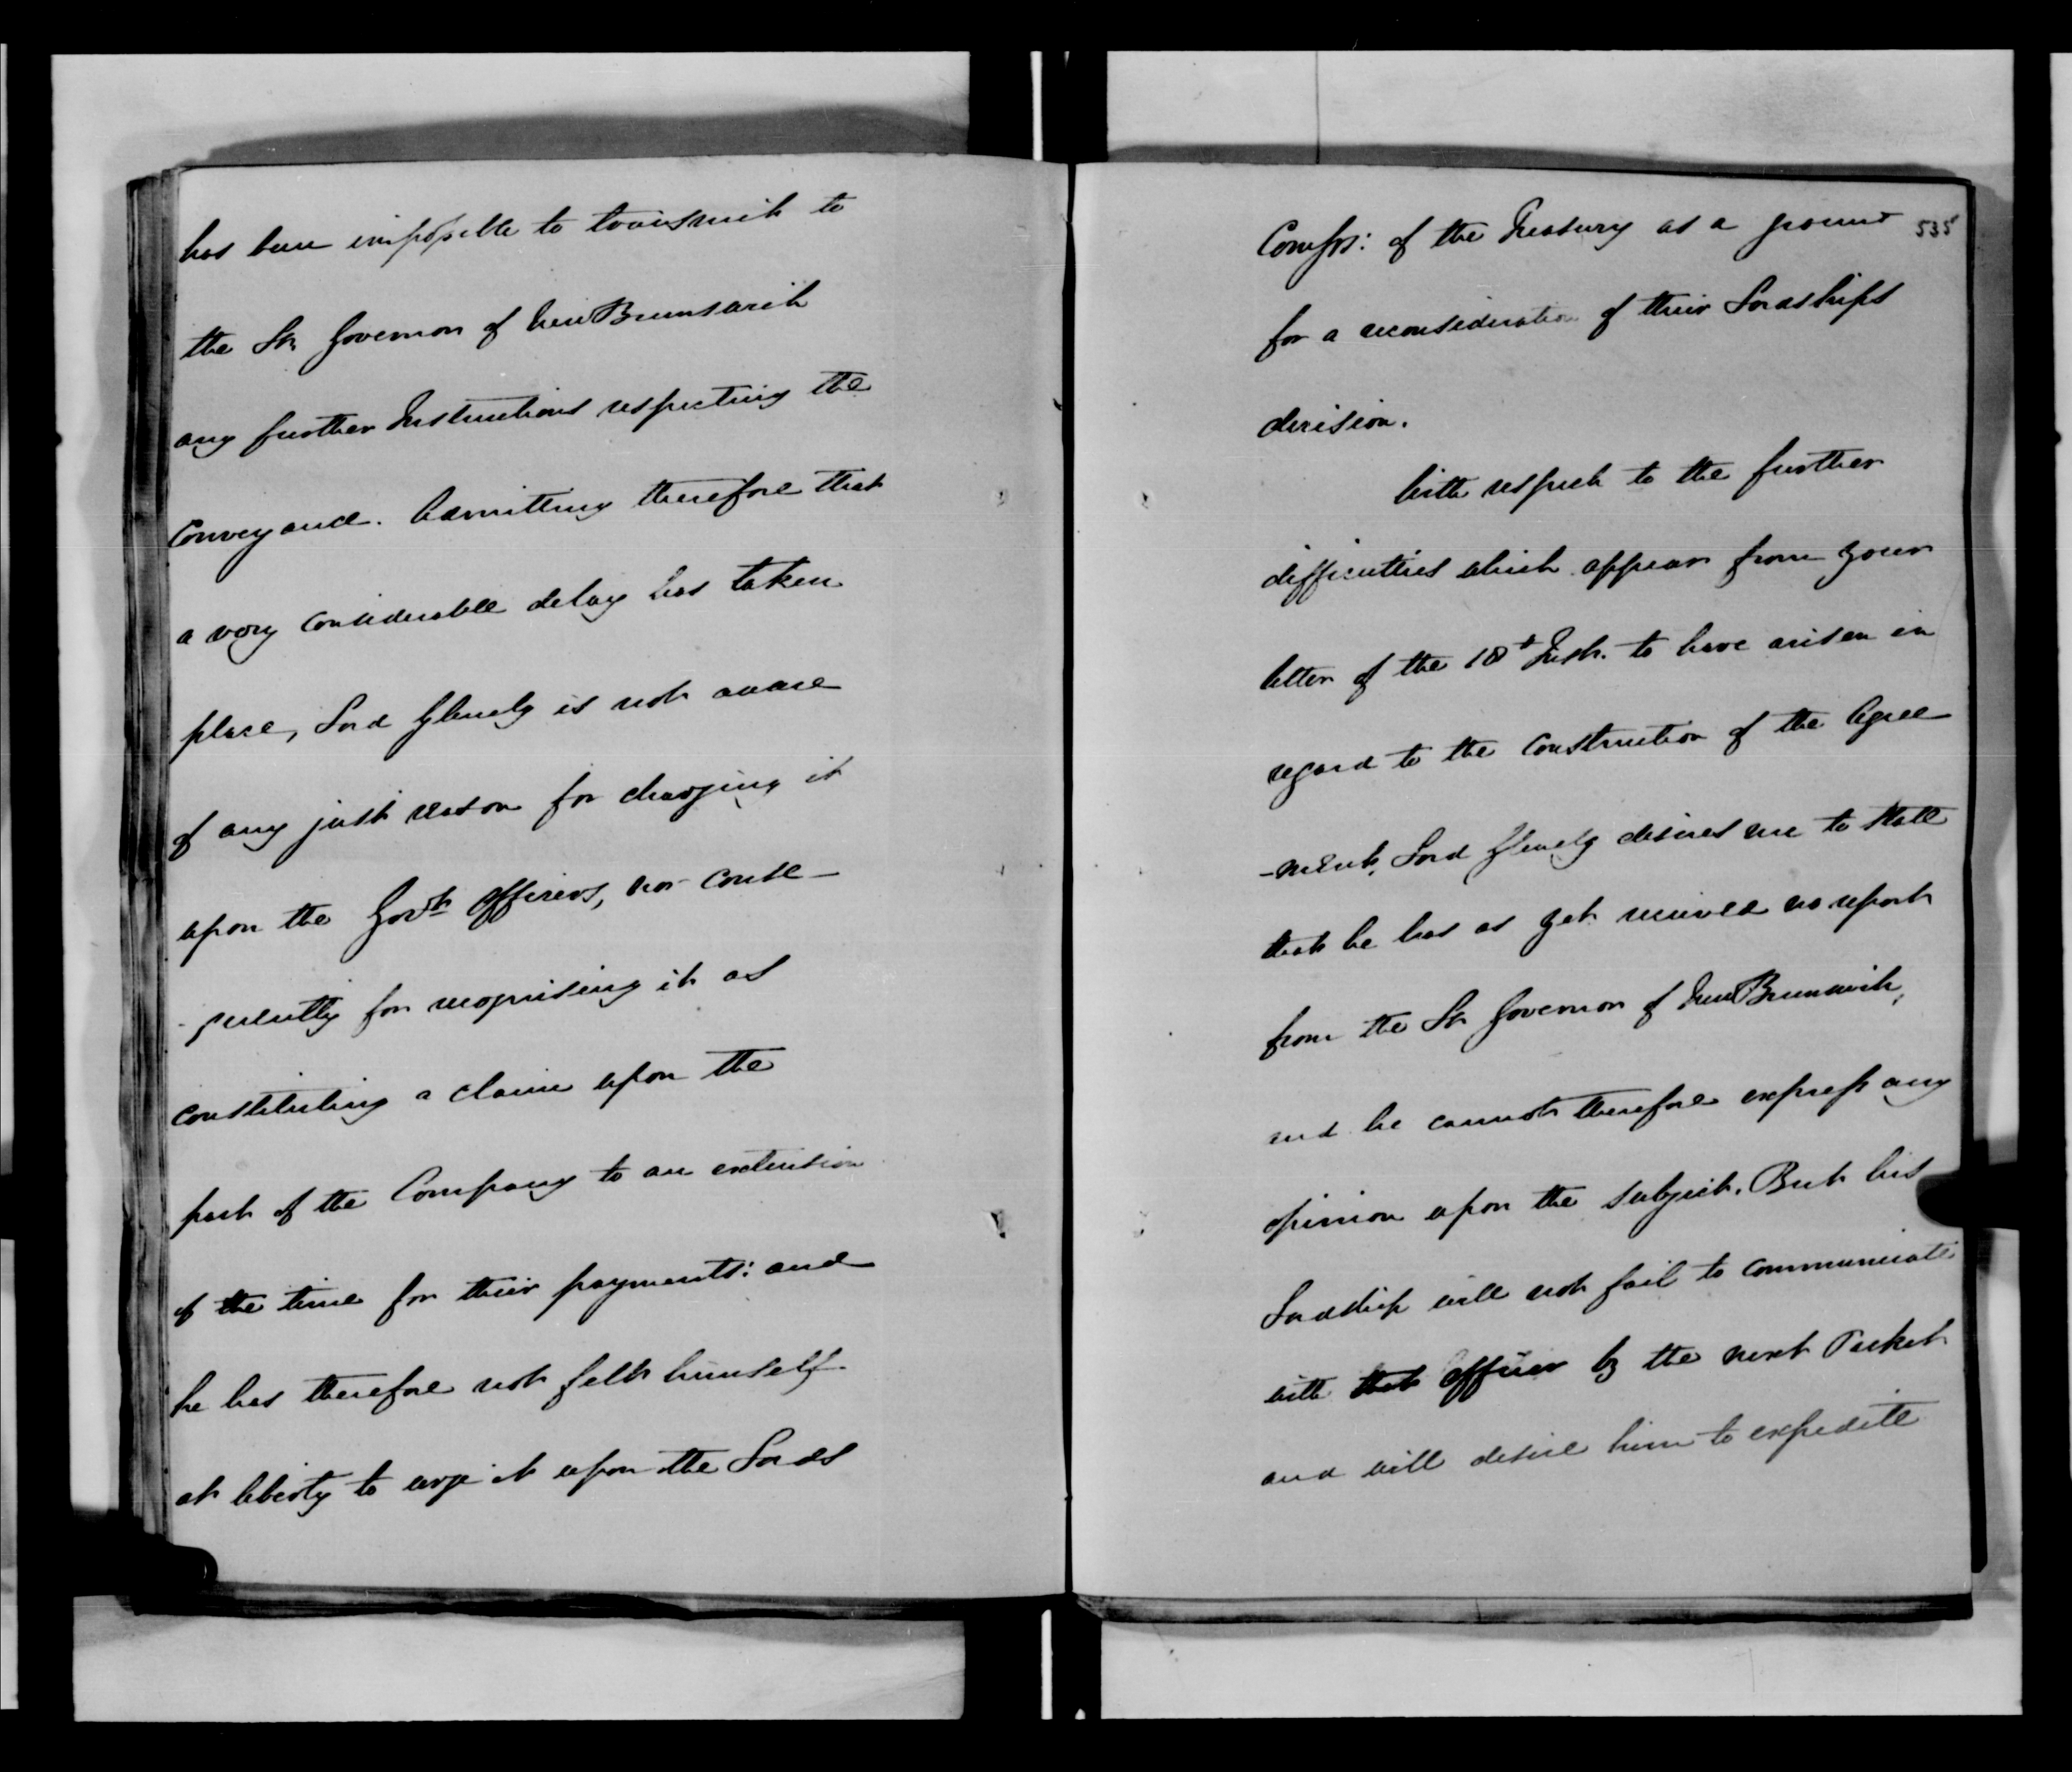 has been impossible to transmit to
the Lt. Governor of New Brunswick
any further Instructions respecting the
Conveyance. Admitting therefore that
a very considerable delay has taken
place, Lord Glenelg is not aware
of any just reason for charging it
upon the Govt. Officers, nor conse-
-quently for recognising it as
constituting a claim upon the
part of the Company to an extension
of the time for their payments: and
he has therefore not felt himself
at liberty to urge it upon the Lords
Comssrs: of the Treasury as a ground
535
for a reconsideration of their Lordships
decision.
With respect to the further
difficulties which appear from your
letter of the 18t Inst. to have arisen in
regard to the construction of the Agree
-ment, Lord Glenelg desires me to state
that he has as yet received no report
from the Lt Governor of New Brunswick,
and he cannot therefore express any
opinion upon the subject. But his
Lordship will not fail to communicate
with that Officer by the next Packet
and will desire him to expedite